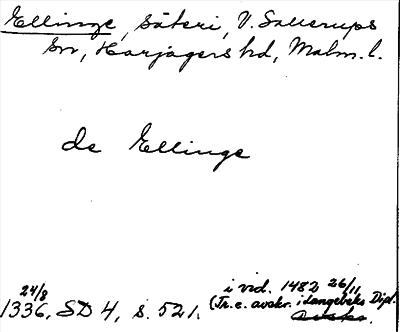 Ellinge, säteri, V. Sallerups
sn, Harjagers hd, Malm. l.
de Ellinge
24/8
1336, SD 4, s. 521.
i vid. 1482 26/11
(Tr. e. avskr. i Langebeks Dipl.